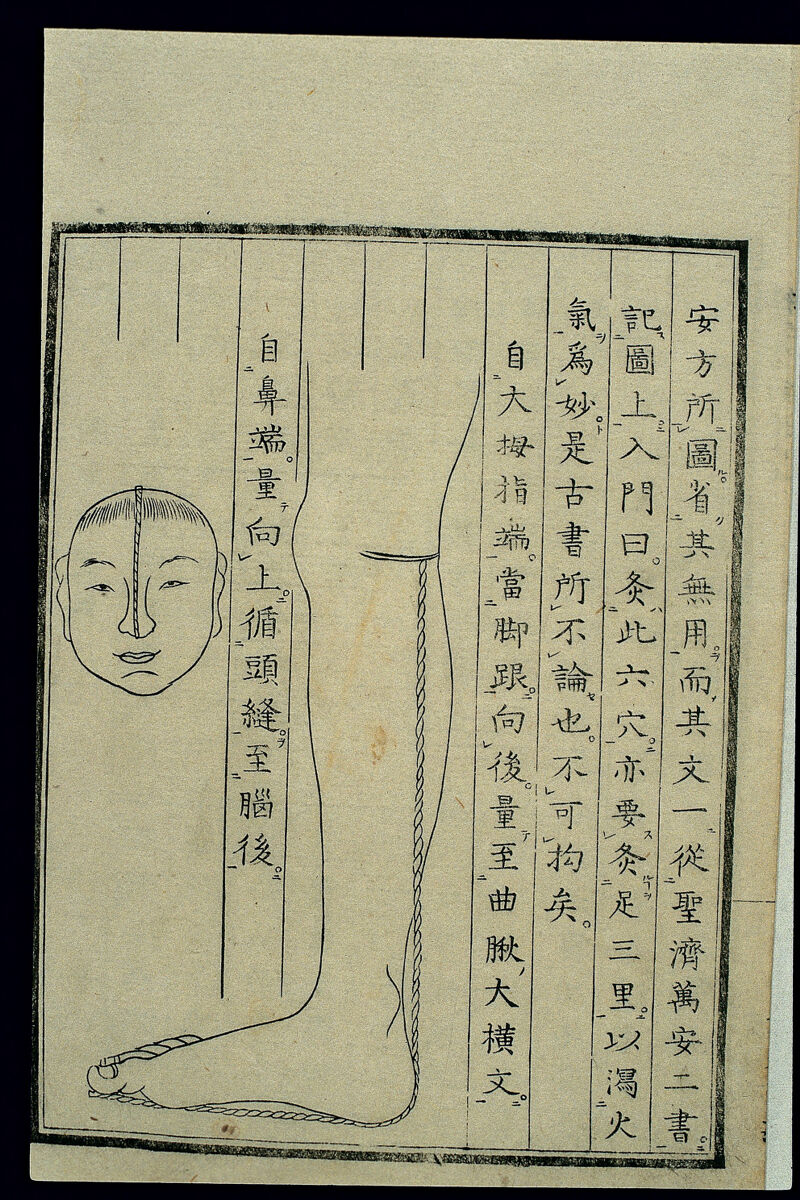 安方所圖省其無用而其文一從聖濟萬安二書
記圖上入門曰灸此六穴亦要灸足三里以瀉火
氣爲妙是古書所不論也不可拘矣
自大拇指端當脚跟向後量至曲脉大橫文
自鼻端量向上循頭縫至腦後